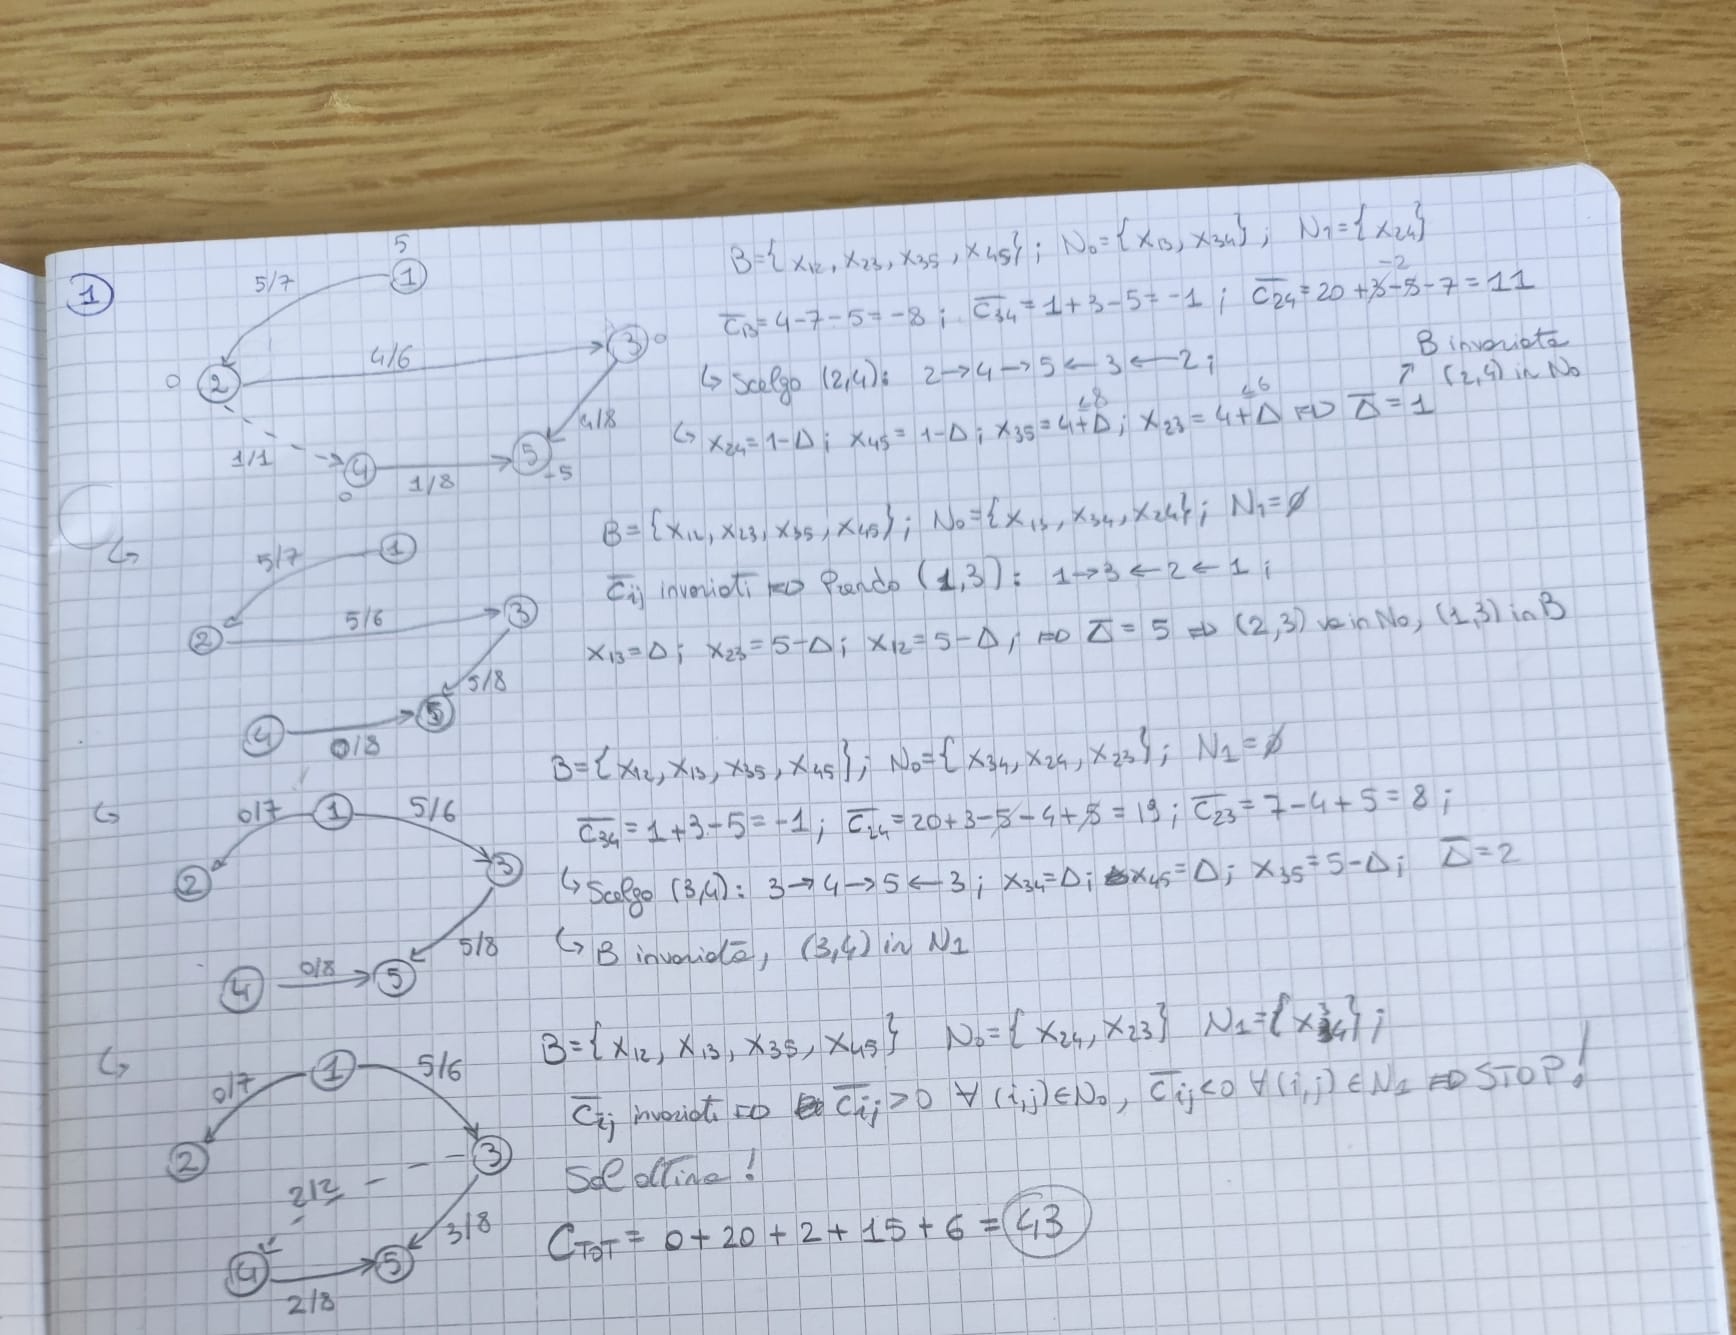 1
5
5/7
1
2
0
4/6
3
0
4/8
1/1
4
0
1/8
5
-5
B={x12, x23, x35, x45}; N0={x13, x34}; N1={x24}
c̄13=4-7-5=-8; c̄34=1+3-5=-1; c̄24=20+3-5-7=11
-2
↳ Scelgo (2,4): 2→4→5←3←2;
B invariata
↗ (2,4) in N0
↳ x24=1-Δ; x45=1-Δ; x35=4+Δ; x23=4+Δ ⇒ Δ̄=1
≤8 ≤6
↳
5/7
1
2
5/6
3
5/8
4
0/8
5
B={x12, x23, x35, x45}; N0={x13, x34, x24}; N1=∅
c̄ij invariati ⇒ Prendo (1,3): 1→3←2←1;
x13=Δ; x23=5-Δ; x12=5-Δ; ⇒ Δ̄=5 ⇒ (2,3) va in N0, (1,3) in B
↳
0/7
1
5/6
2
3
5/8
4
0/8
5
B={x12, x13, x35, x45}; N0={x34, x24, x23}; N1=∅
c̄34=1+3-5=-1; c̄24=20+3-5-4+5=19; c̄23=7-4+5=8;
↳ Scelgo (3,4): 3→4→5←3; x34=Δ; x45=Δ; x35=5-Δ; Δ̄=2
↳ B invariata, (3,4) in N1
↳
0/7
1
5/6
2
3
2/2
3/8
4
2/8
5
B={x12, x13, x35, x45} N0={x24, x23} N1={x34};
c̄ij invariati ⇒ c̄ij>0 ∀(i,j)∈N0, c̄ij<0 ∀(i,j)∈N1 ⇒ STOP!
Sol ottima!
CTOT = 0+20+2+15+6=43